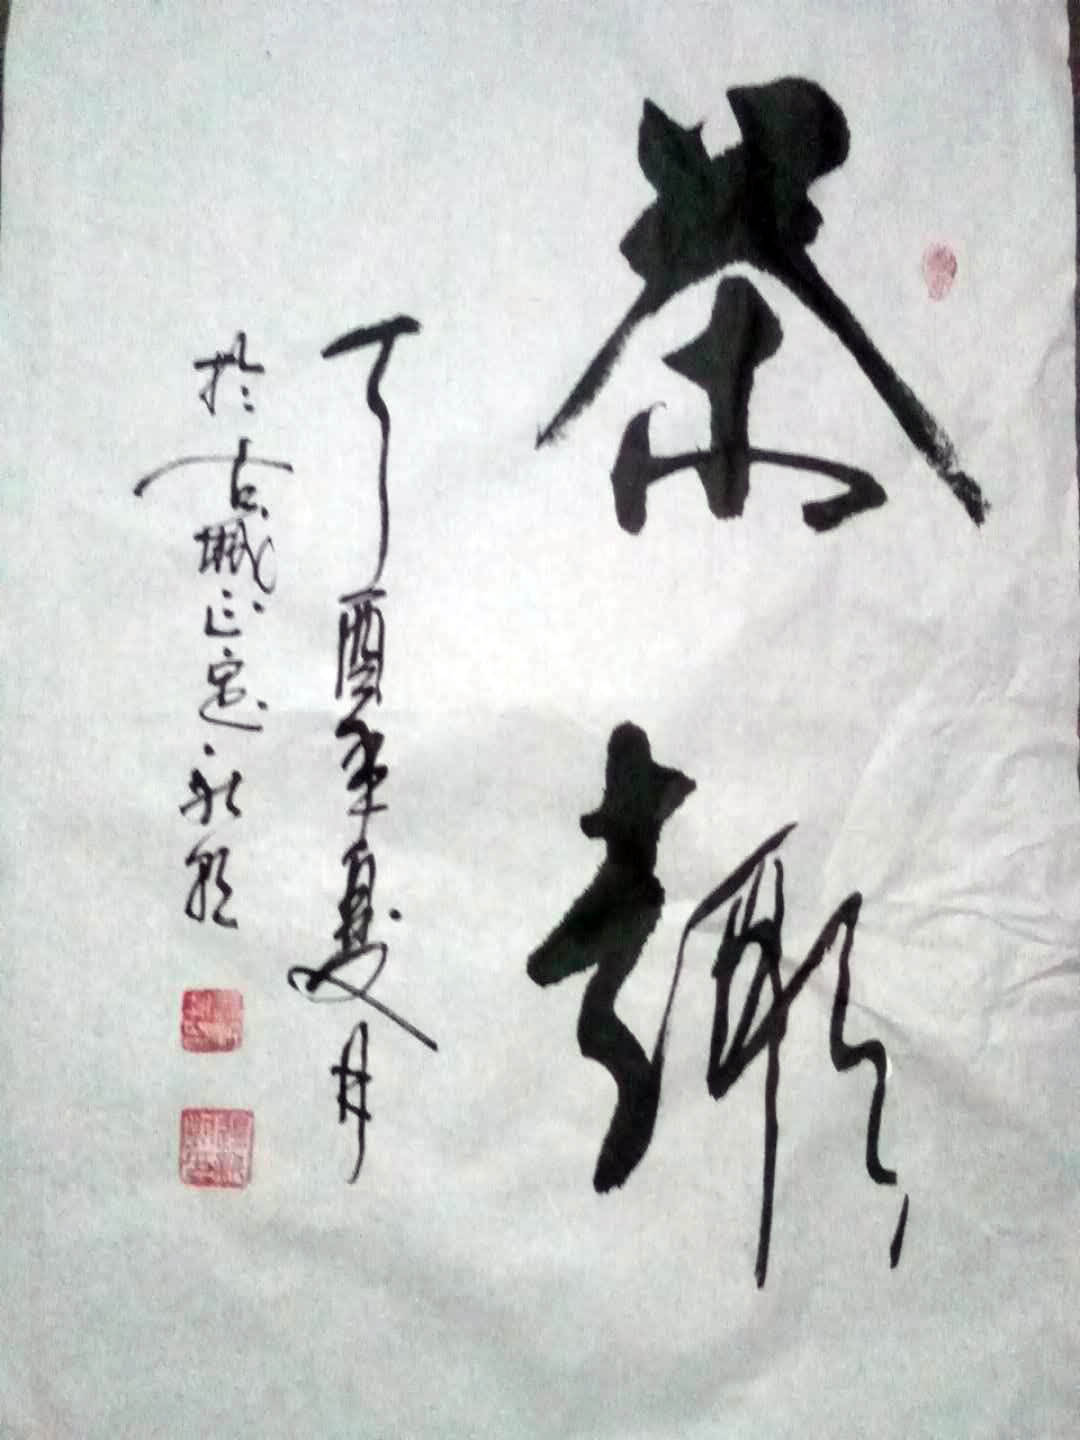 茶趣
丁酉年夏月
於古城正定永能